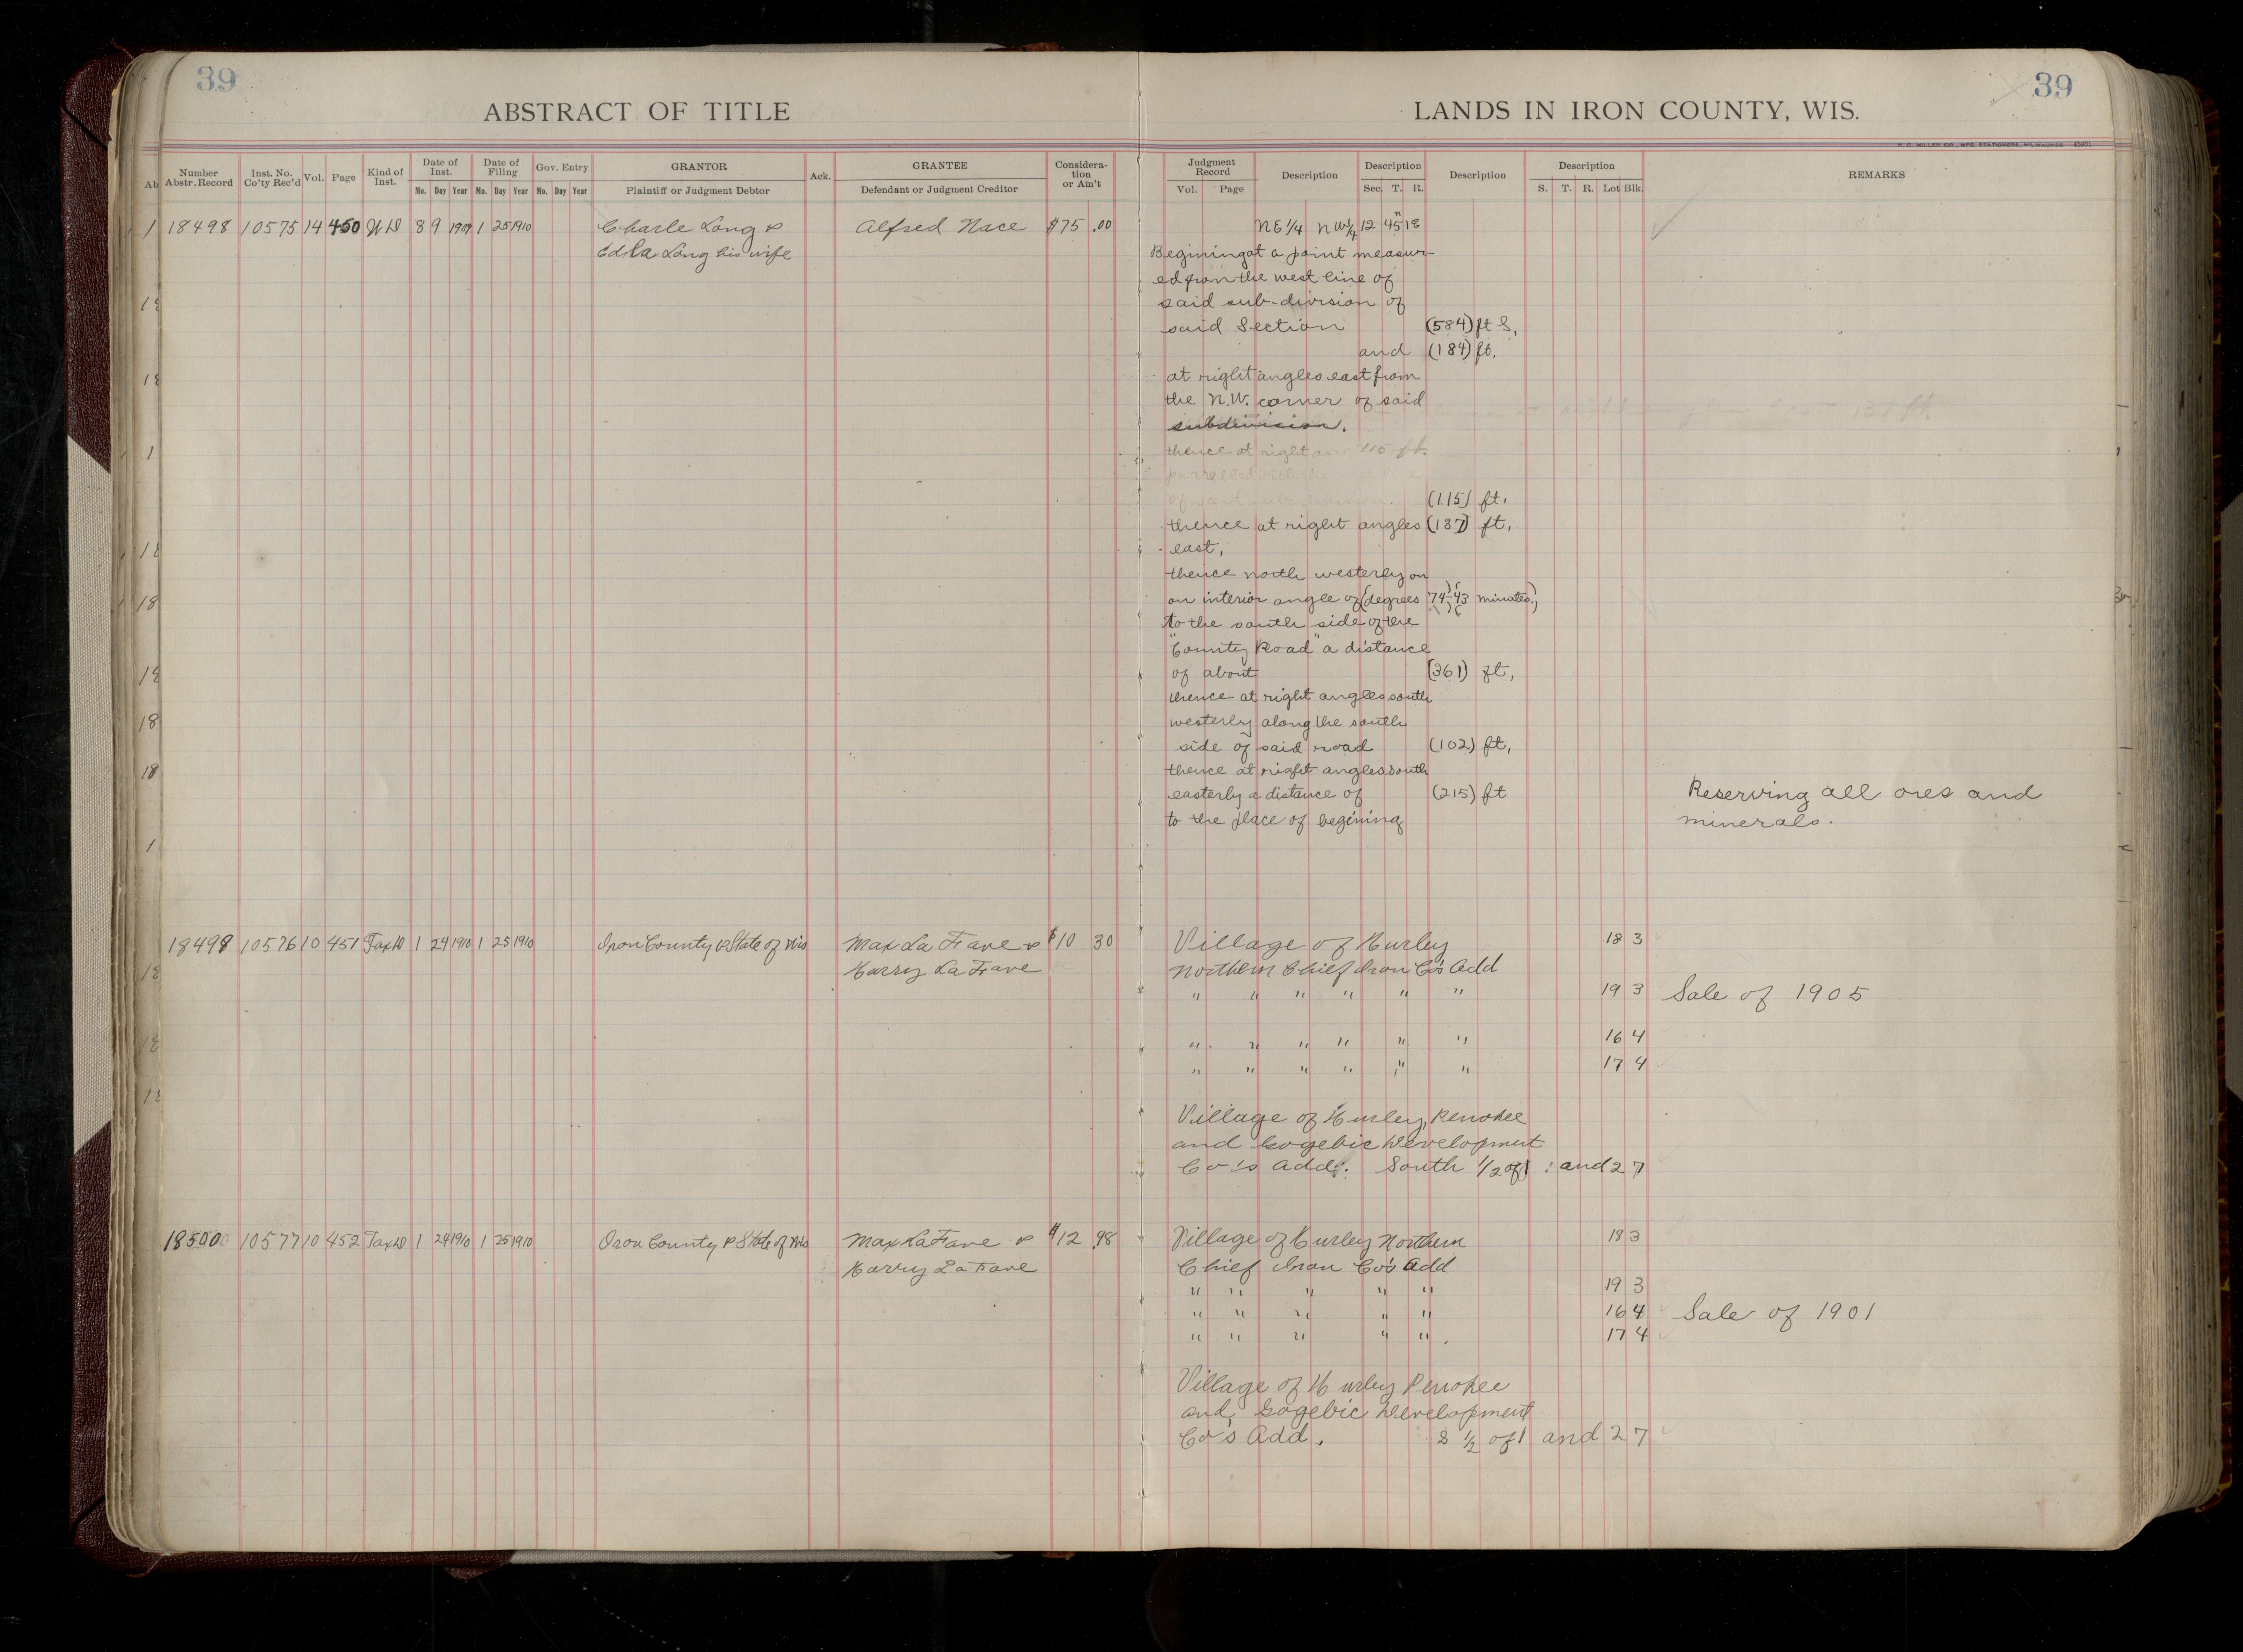 39
39
ABSTRACT OF TITLE
LANDS IN IRON COUNTY, WIS.
H. G. MILLER CO., MFG. STATIONERS, MILWAUKEE
Number Abstr. Record
Inst. No. Co'ty Rec'd
Vol.
Page
Kind of Inst.
Date of Inst.
Mo. Day Year
Date of Filing
Mo. Day Year
Gov. Entry
Mo. Day Year
GRANTOR
Plaintiff or Judgment Debtor
Ack.
GRANTEE
Defendant or Judgment Creditor
Considera-
tion
or Am't
Judgment Record
Vol. Page
Description
Description
Sec. T. R.
Description
Description
S. T. R. Lot Blk.
REMARKS
18498 10575 14 450 WD 8 9 1909 1 25 1910 Charle Long & Alfred Nace $75.00 NE 1/4 NW 1/4 12 45 n 1E
Edla Long his wife
Begining at a point measur-
ed from the west line of
said sub-division of
said Section (584) ft S,
and (184) ft,
at right angles east from
the N.W. corner of said
subdivision.
thence at right 115 ft.
(115) ft,
thence at right angles (137) ft,
east,
thence north westerly on
an interior angle of (degrees 74-43 minutes)
to the south side of the
"County Road" a distance
of about (361) ft,
thence at right angles south
westerly along the south
side of said road (102) ft,
thence at right angles south
easterly a distance of (215) ft Reserving all ores and
to the place of begining minerals.
18498 10576 10 451 Tax D 1 24 1910 1 25 1910 Iron County & State of Wis Max La Fave & $10 30 Village of Hurley 18 3
Harry La Fave Northern Chief Iron Co's Add
" " " " " " 19 3 Sale of 1905
" " " " " " 16 4
" " " " " " 17 4
Village of Hurley, Penokee
and Gogebic Development
Co's Add. South 1/2 of 1 and 2 7
18500 10577 10 452 Tax D 1 24 1910 1 25 1910 Iron County & State of Wis Max La Fave & $12.98 Village of Hurley Northern 18 3
Harry La Fave Chief Iron Co's Add
" " " " " 19 3
" " " " " 16 4 Sale of 1901
" " " " " 17 4
Village of Hurley Penokee
and Gogebic Development
Co's Add. S 1/2 of 1 and 2 7